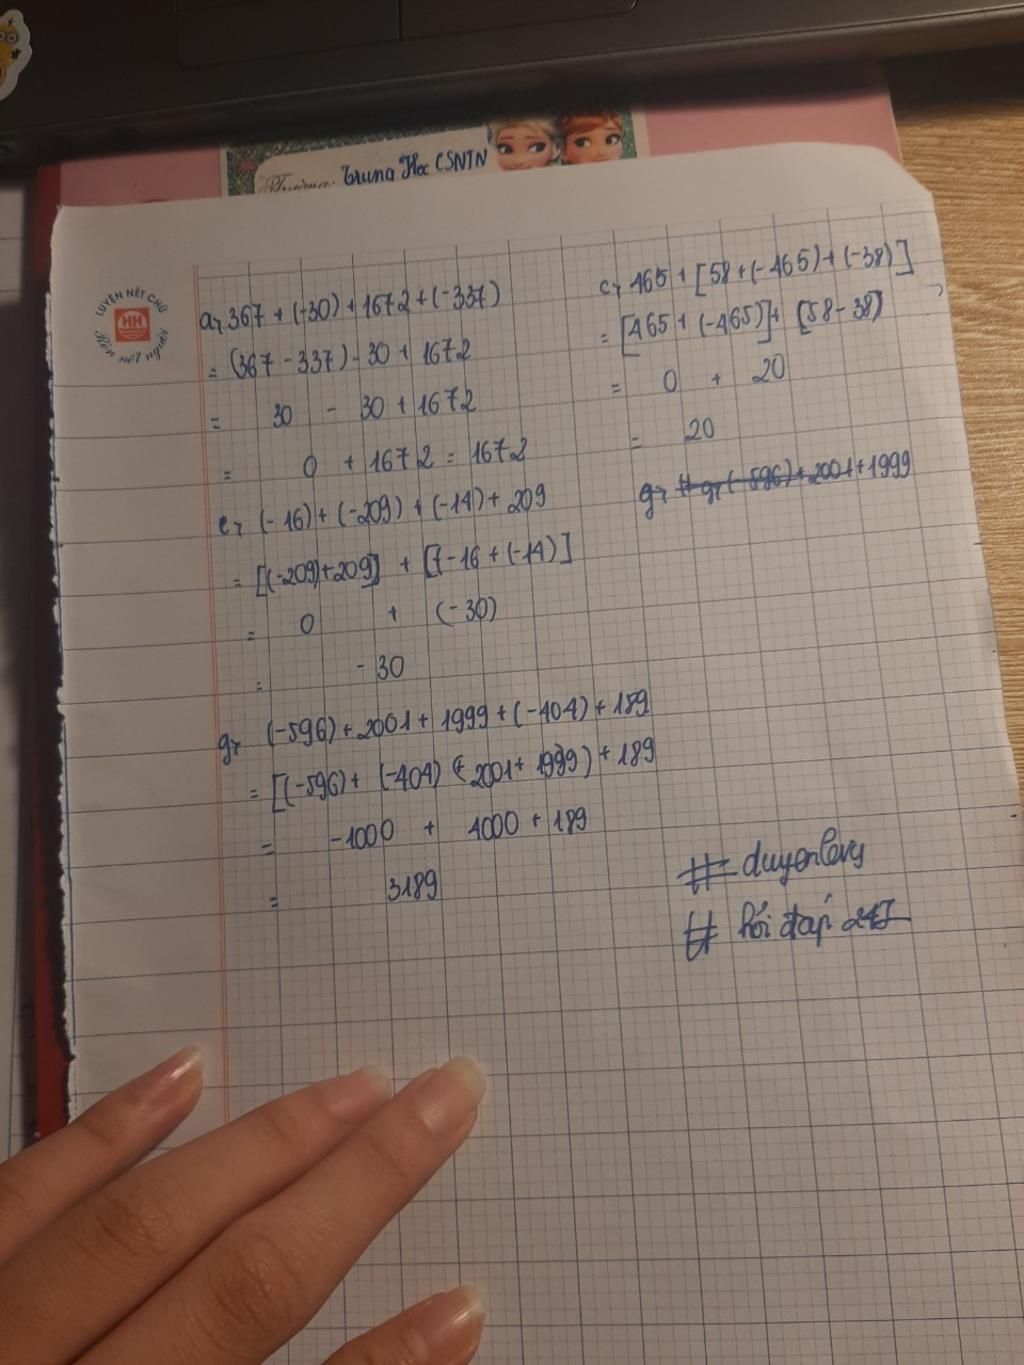 Trường: Trung Học CSNTN
LUYỆN NÉT CHỮ
HH
Rèn nết người
a, 367 + (-30) + 1672 + (-337)
= (367 - 337) - 30 + 1672
= 30 - 30 + 1672
= 0 + 1672 = 1672
c, 465 + [58 + (-465) + (-38)]
= [465 + (-465)] + [58 - 38]
= 0 + 20
= 20
g, (-596) + 2001 + 1999
e, (-16) + (-209) + (-14) + 209
= [(-209) + 209] + [(-16 + (-14)]
= 0 + (-30)
= -30
g, (-596) + 2001 + 1999 + (-404) + 189
= [(-596) + (-404) + (2001 + 1999) + 189
= -1000 + 4000 + 189
= 3189
# duyenlevy
# hỏi đáp 247